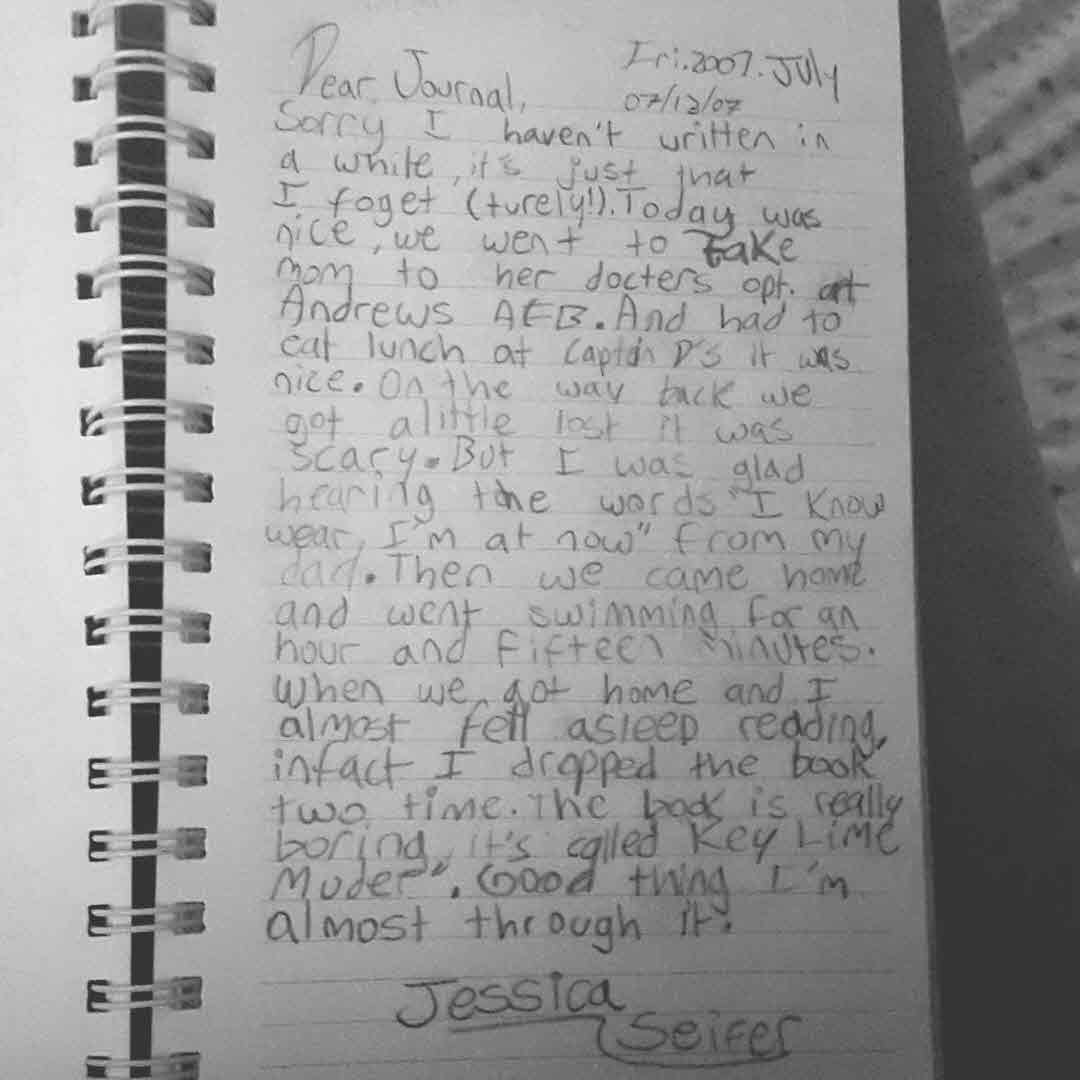 Fri.2007.July
Dear Journal,
07/13/07
Sorry I haven't written in
a while, it's just that
I foget (turely!). Today was
nice, we went to take
mom to her docters opt. at
Andrews AFB. And had to
eat lunch at Captain D's it was
nice. On the way back we
got alittle lost it was
scary. But I was glad
hearing the words "I know
wear, I'm at now" from my
dad. Then we came home
and went swimming for an
hour and fifteen minutes.
When we got home and I
almost fell asleep reading,
infact I dropped the book
two time. The book is really
boring, it's called Key Lime
Muder". Good thing I'm
almost through it.
Jessica
Seifer